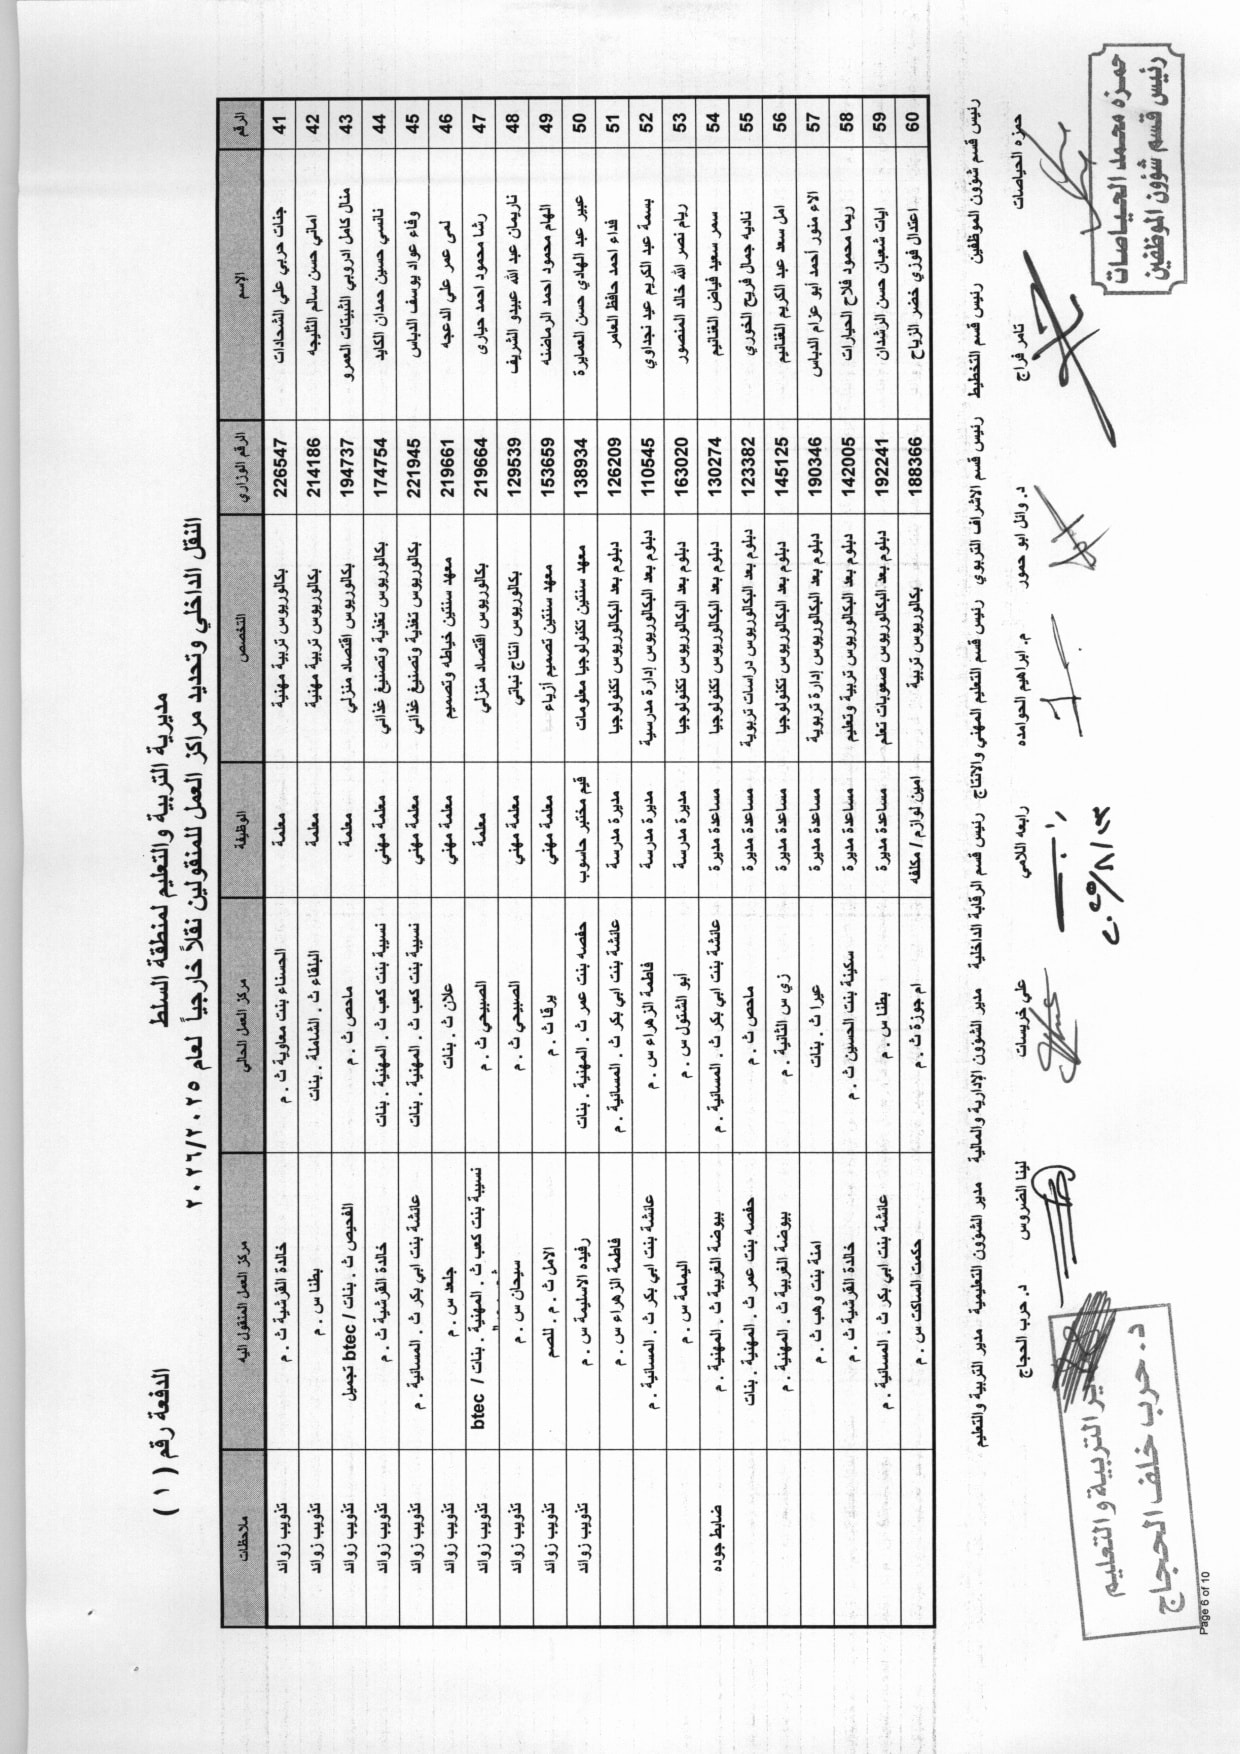 مديرية التربية والتعليم لمنطقة السلط
الدفعة رقم ( ١ )
النقل الداخلي وتحديد مراكز العمل للمنقولين نقلاً خارجياً لعام ٢٠٢٦/٢٠٢٥
الرقم الإسم الرقم الوزاري التخصص الوظيفة مركز العمل الحالي مركز العمل المنقول اليه ملاحظات
41 جنات حربي علي الشحادات 226547 بكالوريوس تربية مهنية معلمة الحسناء بنت معاوية ث . م خالدة القرشية ث . م تذويب زوائد
42 اماني حسن سالم الثليجه 214186 بكالوريوس تربية مهنية معلمة البلقاء ث . الشاملة . بنات بطنا س . م تذويب زوائد
43 منال كامل ادروبي الثبيتات العمرو 194737 بكالوريوس اقتصاد منزلي معلمة ماحص ث . م الفحيص ث . بنات / btec تجميل تذويب زوائد
44 نانسي حسين حمدان الكايد 174754 بكالوريوس تغذية وتصنيع غذائي معلمة مهني نسيبة بنت كعب ث . المهنية . بنات خالدة القرشية ث . م تذويب زوائد
45 وفاء عواد يوسف الدباس 221945 بكالوريوس تغذية وتصنيع غذائي معلمة مهني نسيبة بنت كعب ث . المهنية . بنات عائشة بنت ابي بكر ث . المسائية . م تذويب زوائد
46 لمى عمر علي الدعجه 219661 معهد سنتين خياطه وتصميم معلمة مهني علان ث . بنات جلعد س . م تذويب زوائد
47 رشا محمود احمد حيارى 219664 بكالوريوس اقتصاد منزلي معلمة الصبيحي ث . م نسيبة بنت كعب ث . المهنية . بنات / btec تذويب زوائد
48 ناريمان عبد الله عبيدو الشريف 129539 بكالوريوس انتاج نباتي معلمة مهني الصبيحي ث . م سيحان س . م تذويب زوائد
49 الهام محمود احمد الرماضنه 153659 معهد سنتين تصميم أزياء معلمة مهني يرقا ث . م الامل ث . م . للصم تذويب زوائد
50 عبير عبد الهادي حسن العمايرة 138934 معهد سنتين تكنولوجيا معلومات قيم مختبر حاسوب حفصه بنت عمر ث . المهنية . بنات رفيده الاسلمية س . م تذويب زوائد
51 فداء احمد حافظ العامر 126209 دبلوم بعد البكالوريوس تكنولوجيا مديرة مدرسة عائشة بنت ابي بكر ث . المسائية . م فاطمة الزهراء س . م
52 بسمة عبد الكريم عيد نجداوي 110545 دبلوم بعد البكالوريوس إدارة مدرسية مديرة مدرسة فاطمة الزهراء س . م عائشة بنت ابي بكر ث . المسائية . م
53 ريام نصر الله خالد المنصور 163020 دبلوم بعد البكالوريوس تكنولوجيا مديرة مدرسة أبو الشتول س . م اليمامة س . م
54 سمر سعيد فياض الغنانيم 130274 دبلوم بعد البكالوريوس تكنولوجيا مساعدة مديرة عائشة بنت ابي بكر ث . المسائية . م بيوضة الغربية ث . المهنية . م ضابط جوده
55 ناديه جمال فريح الخوري 123382 دبلوم بعد البكالوريوس دراسات تربوية مساعدة مديرة ماحص ث . م حفصه بنت عمر ث . المهنية . بنات
56 امل سعد عبد الكريم الغنانيم 145125 دبلوم بعد البكالوريوس تكنولوجيا مساعدة مديرة زي س الثانية . م بيوضة الغربية ث . المهنية . م
57 الاء منور أحمد أبو عزام الدباس 190346 دبلوم بعد البكالوريوس إدارة تربوية مساعدة مديرة عيرا ث . بنات امنة بنت وهب ث . م
58 ريما محمود فلاح الحيارات 142005 دبلوم بعد البكالوريوس تربية وتعليم مساعدة مديرة سكينة بنت الحسين ث . م خالدة القرشية ث . م
59 ايات شعبان حسن الرشدان 192241 دبلوم بعد البكالوريوس صعوبات تعلم مساعدة مديرة بطنا س . م عائشة بنت ابي بكر ث . المسائية . م
60 اعتدال فوزي خضر الزياح 188366 بكالوريوس تربية امين لوازم / مكلفه ام جوزة ث . م حكمت الساكت س . م
رئيس قسم شؤون الموظفين رئيس قسم التخطيط رئيس قسم الاشراف التربوي رئيس قسم التعليم المهني والانتاج رئيس قسم الرقابة الداخلية مدير الشؤون الإدارية والمالية مدير الشؤون التعليمية مدير التربية والتعليم
حمزه الحياصات ثامر فراج د. وائل ابو حمور م. ابراهيم الحوامده رابعه اللامي علي خريسات لينا الضروس د. حرب الحجاج
٢٠٢٥/٨/٢٣
حمزه محمد الحياصات
رئيس قسم شؤون الموظفين
مدير التربية والتعليم
د. حرب خلف الحجاج
Page 6 of 10